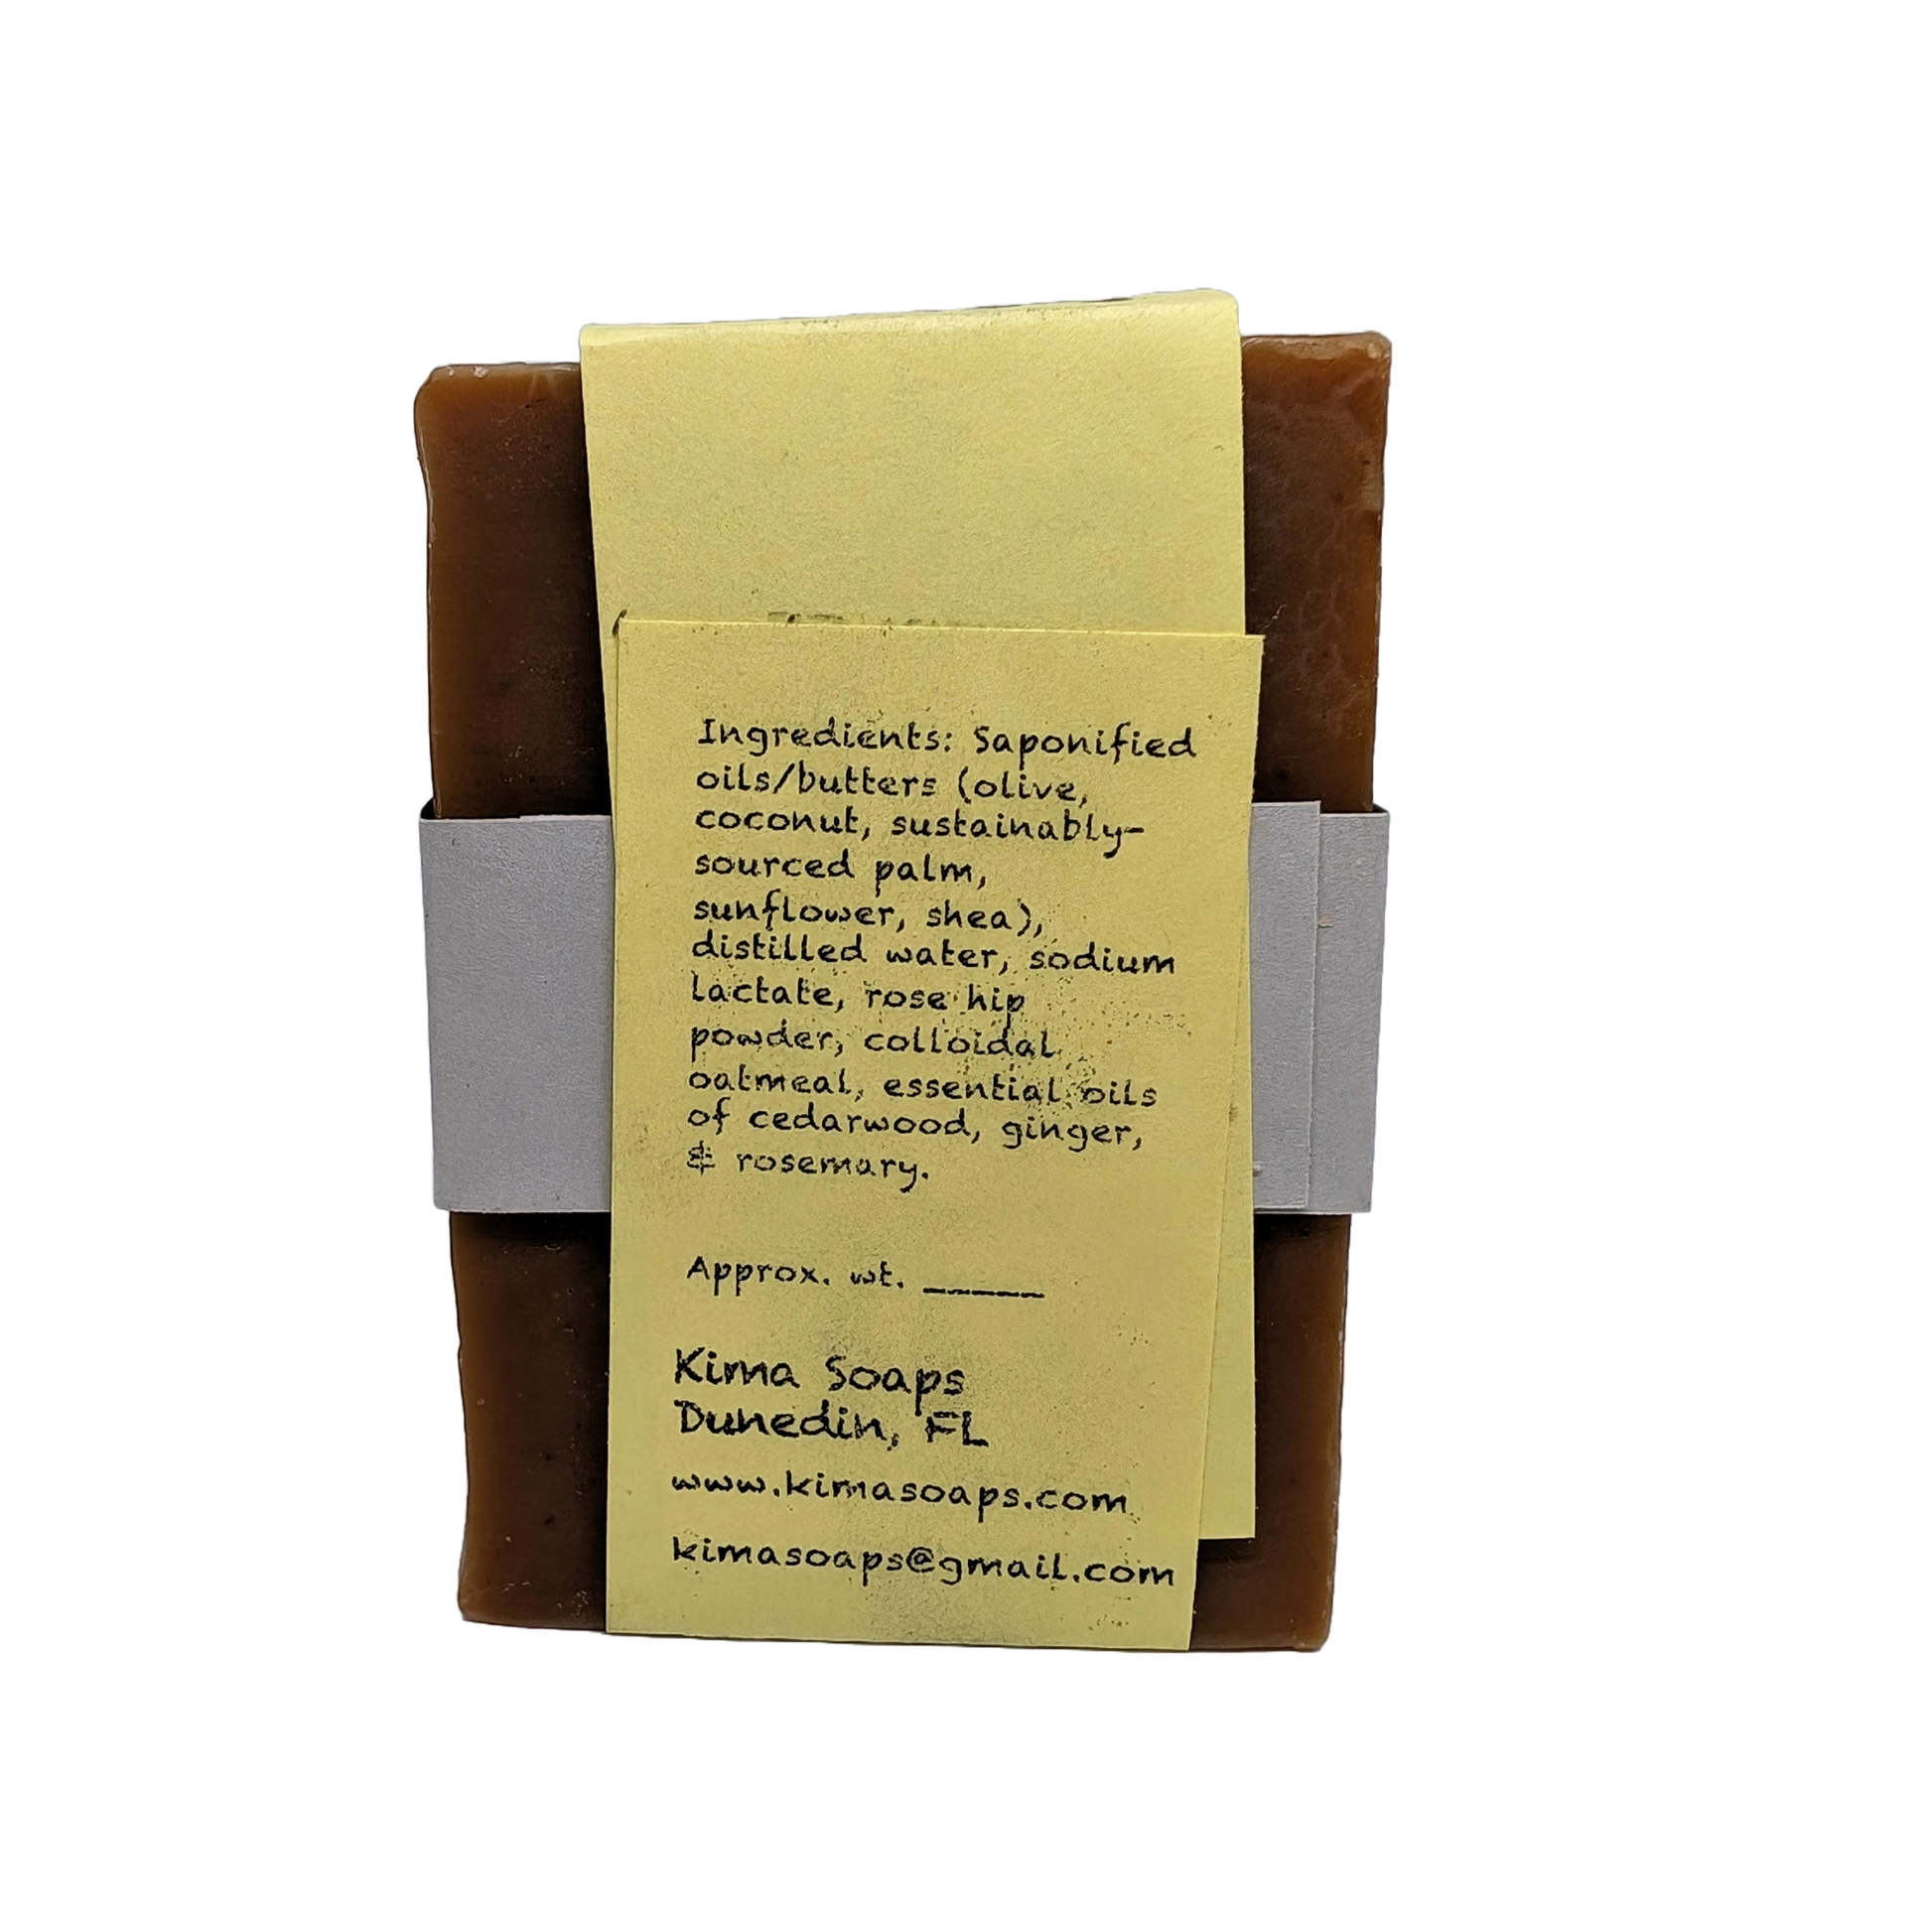 Ingredients: Saponified
oils/butters (olive,
coconut, sustainably-
sourced palm,
sunflower, shea),
distilled water, sodium
lactate, rose hip
powder, colloidal
oatmeal, essential oils
of cedarwood, ginger,
& rosemary.
Approx. wt. ______
Kima Soaps
Dunedin, FL
www.kimasoaps.com
kimasoaps@gmail.com